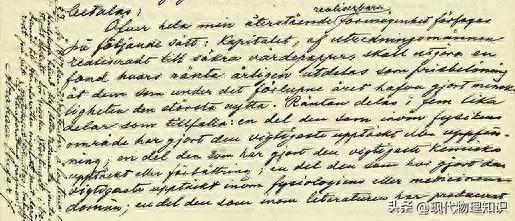 betalas;
realiserbara
Öfver hela min återstående förmögenhet förfogas
på följande sätt: Kapitalet, af utredningsmännen
realiseradt till säkra värdepapper, skall utgöra en
fond hvars ränta årligen utdelas som prisbelöning
åt dem som under det förlupne året hafva gjort mensk-
ligheten den största nytta. Räntan delas i fem lika
delar som tillfalla: en del den som inom fysikens
område har gjort den vigtigaste upptäckt eller uppfin-
ning; en del den som har gjort den vigtigaste kemiska
upptäckt eller förbättring; en del den som har gjort den
vigtigaste upptäckt inom fysiologiens eller medicinens
domän; en del den som inom literaturen har producerat
头条 @现代物理知识